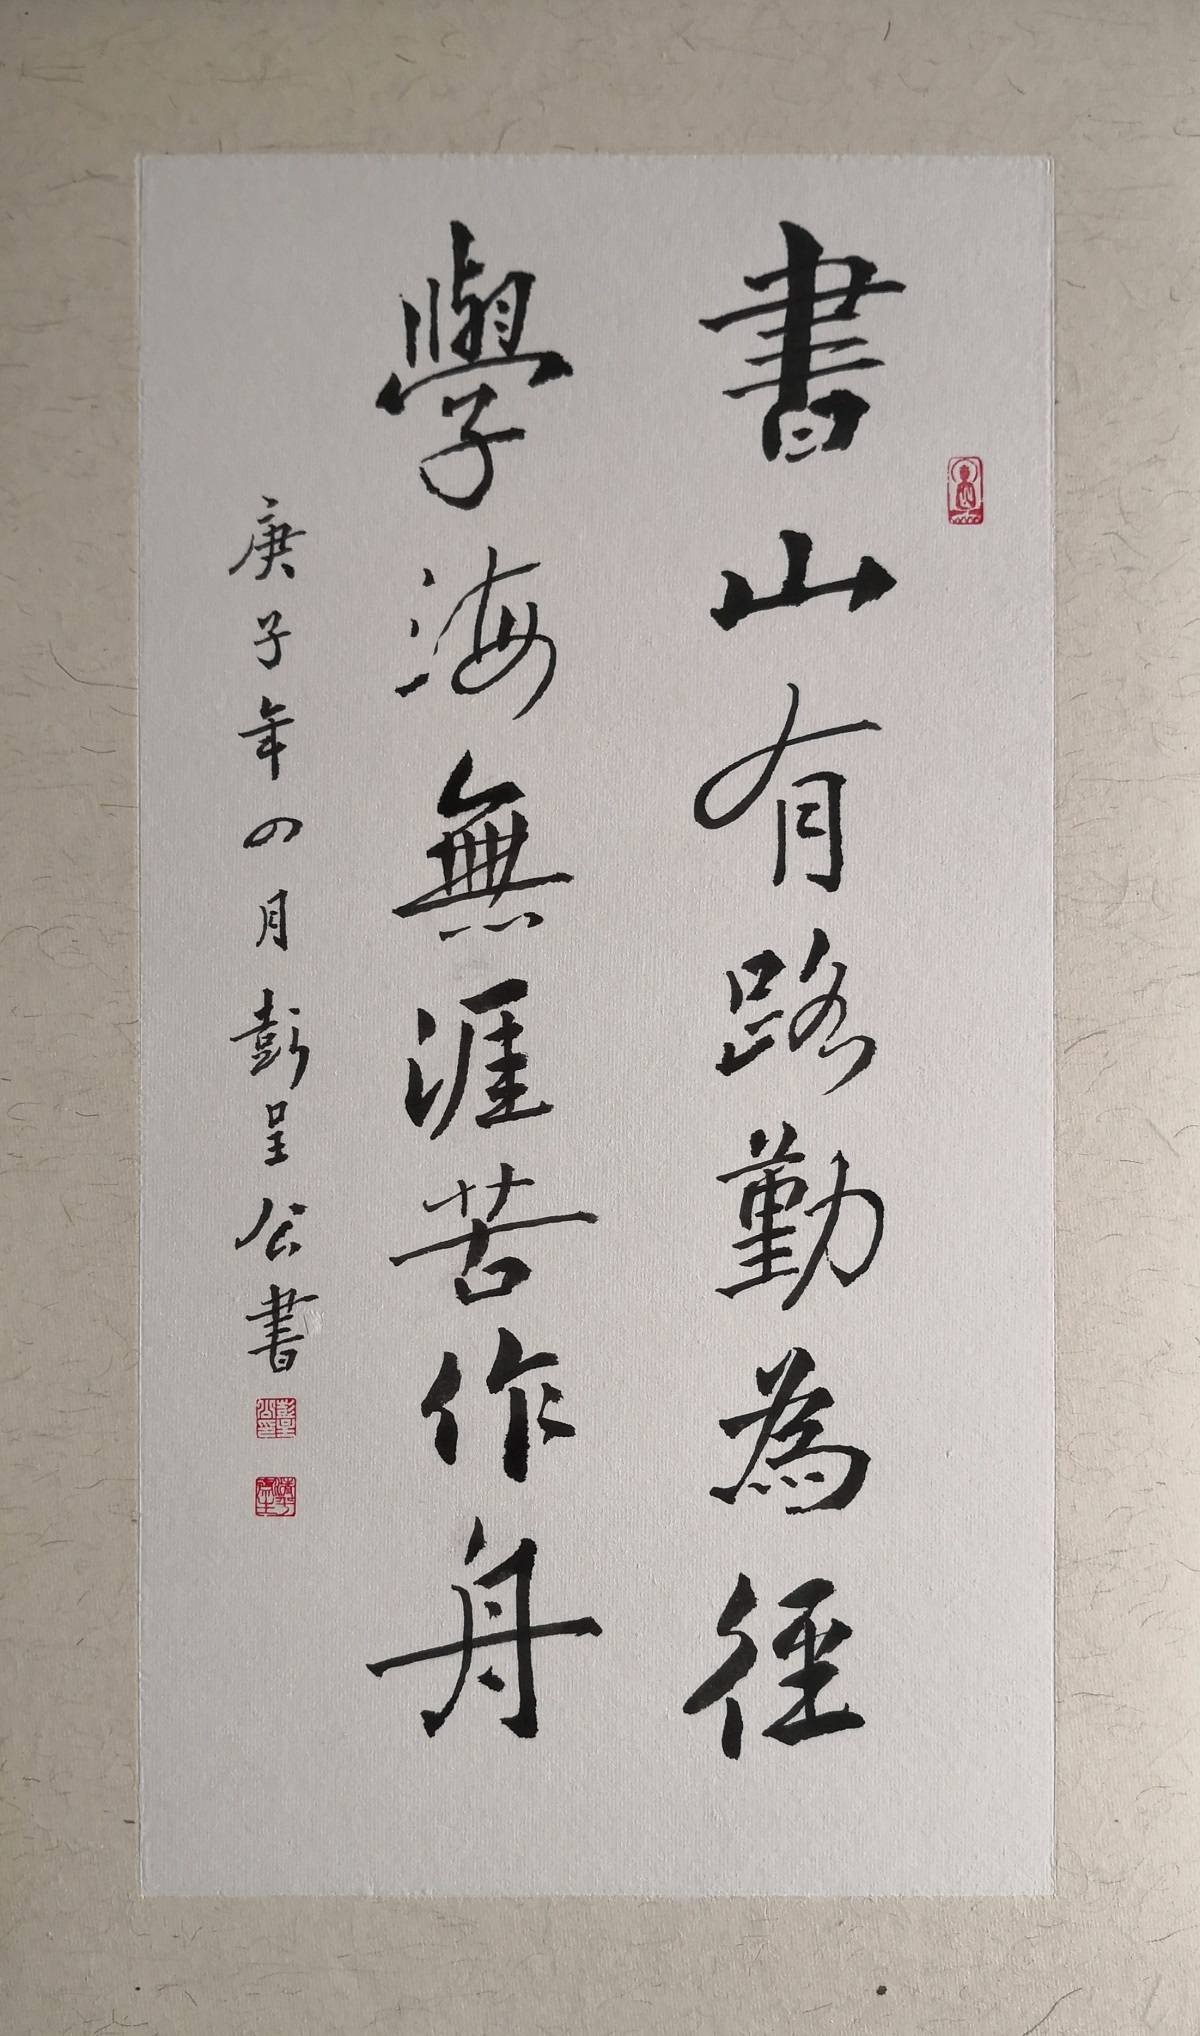 書山有路勤為徑
學海無涯苦作舟
庚子年四月彭呈公書